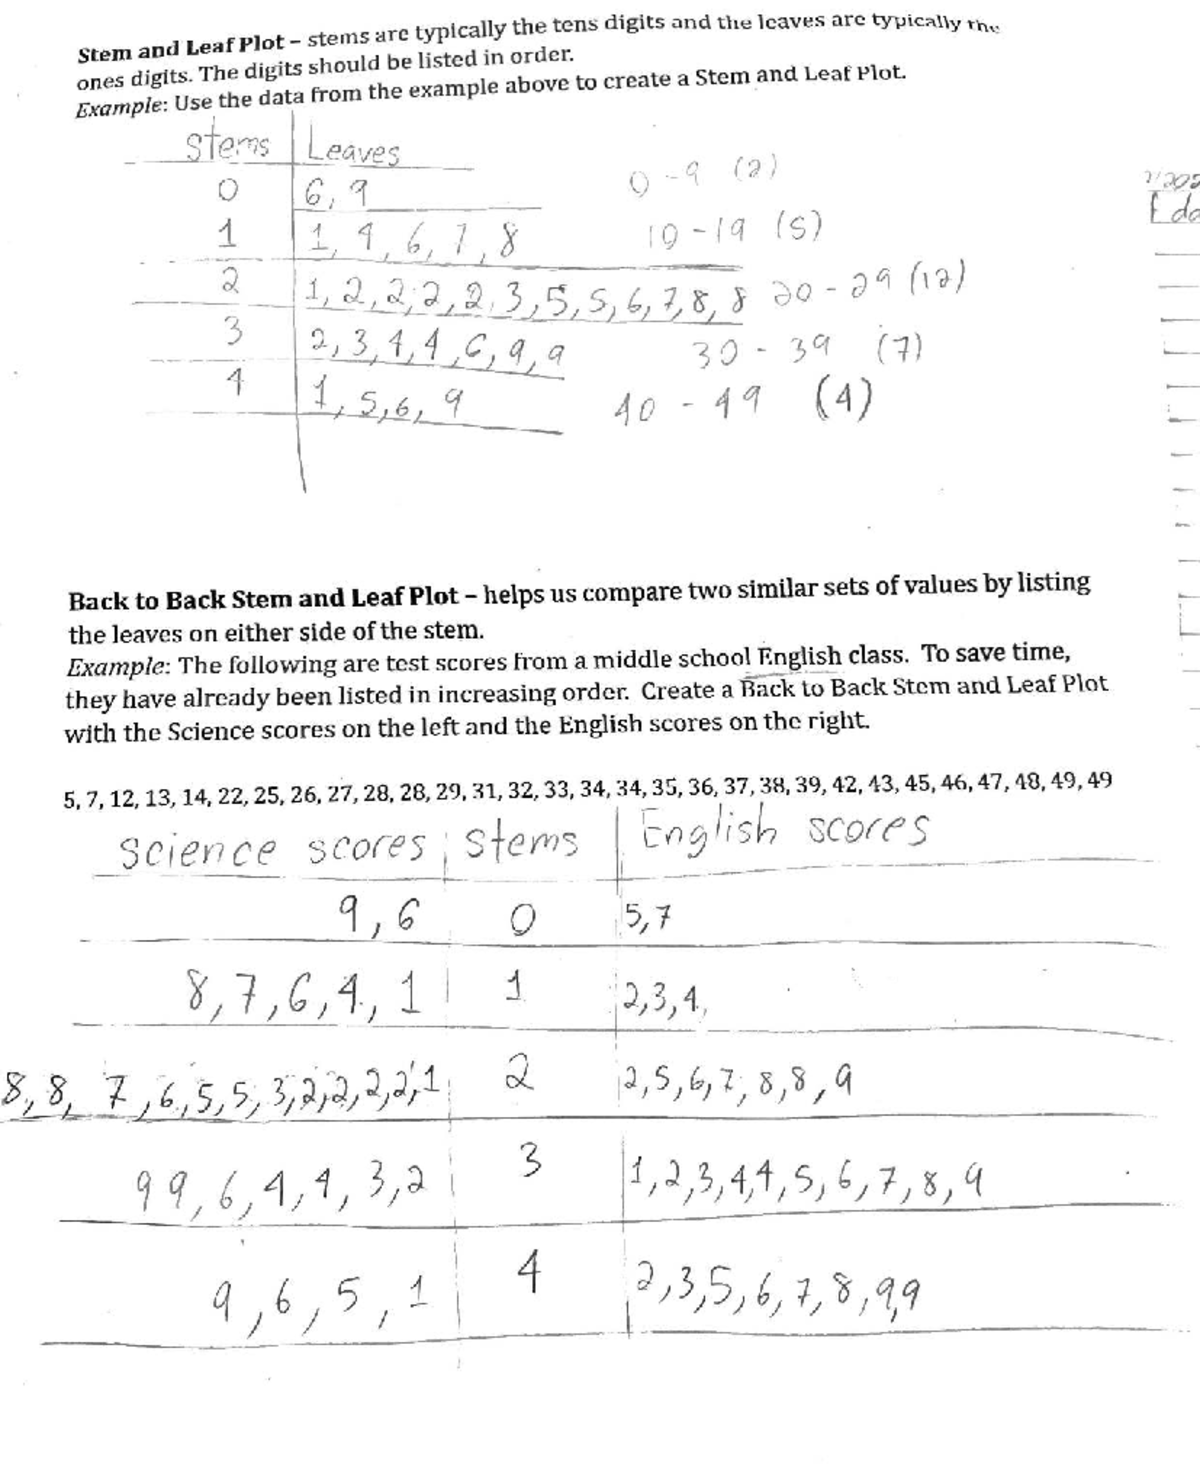 Stem and Leaf Plot – stems are typically the tens digits and the leaves are typically the
ones digits. The digits should be listed in order.
Example: Use the data from the example above to create a Stem and Leaf Plot.
Stems Leaves
0 6, 9 0-9 (2)
1 1, 4, 6, 7, 8 10-19 (5)
2 1, 2, 2, 2, 2, 3, 5, 5, 6, 7, 8, 8 20-29 (12)
3 2, 3, 4, 4, 6, 9, 9 30-39 (7)
4 1, 5, 6, 9 40-49 (4)
Back to Back Stem and Leaf Plot – helps us compare two similar sets of values by listing
the leaves on either side of the stem.
Example: The following are test scores from a middle school English class. To save time,
they have already been listed in increasing order. Create a Back to Back Stem and Leaf Plot
with the Science scores on the left and the English scores on the right.
5, 7, 12, 13, 14, 22, 25, 26, 27, 28, 28, 29, 31, 32, 33, 34, 34, 35, 36, 37, 38, 39, 42, 43, 45, 46, 47, 48, 49, 49
Science scores Stems English scores
9, 6 0 5, 7
8, 7, 6, 4, 1 1 2, 3, 4,
8, 8, 7, 6, 5, 5, 3, 2, 2, 2, 2, 1 2 2, 5, 6, 7, 8, 8, 9
9 9, 6, 4, 4, 3, 2 3 1, 2, 3, 4, 4, 5, 6, 7, 8, 9
9, 6, 5, 1 4 2, 3, 5, 6, 7, 8, 9, 9